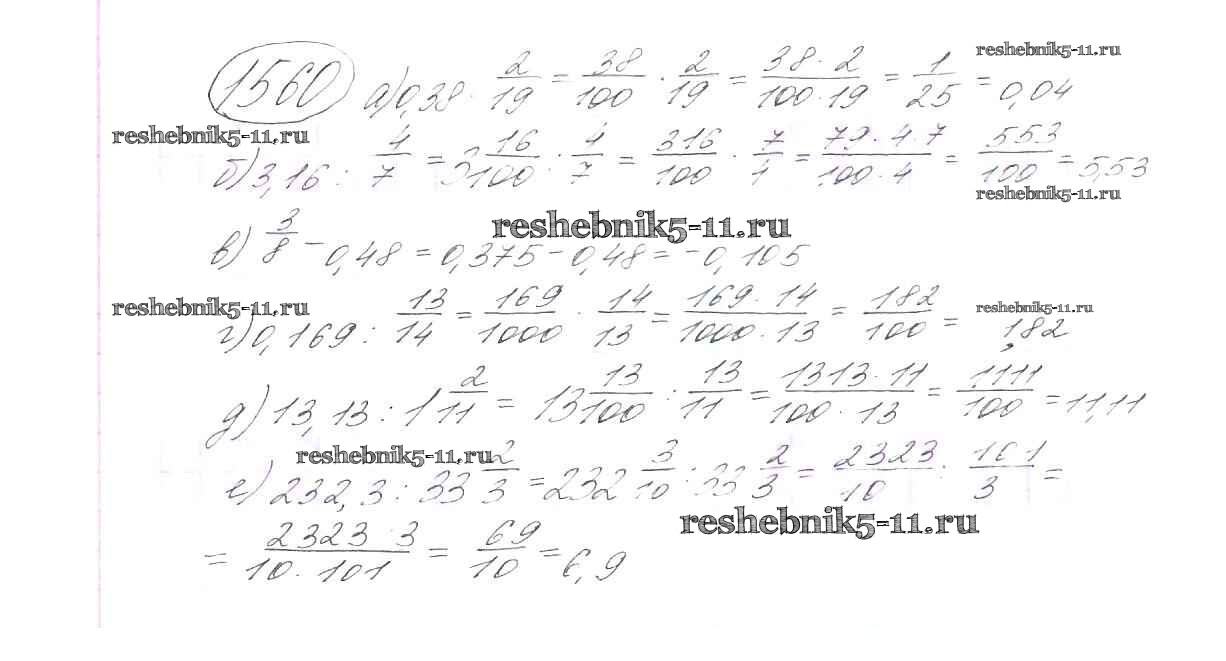 reshebnik5-11.ru
1560 а) 0,38 · 2/19 = 38/100 · 2/19 = 38·2/100·19 = 1/25 = 0,04
reshebnik5-11.ru
б) 3,16 : 4/7 = 3 16/100 · 4/7 = 316/100 · 7/4 = 79·4·7/100·4 = 553/100 = 5,53
reshebnik5-11.ru
reshebnik5-11.ru
в) 3/8 - 0,48 = 0,375 - 0,48 = -0,105
reshebnik5-11.ru
reshebnik5-11.ru
г) 0,169 : 13/14 = 169/1000 · 14/13 = 169·14/1000·13 = 182/100 = 1,82
д) 13,13 : 1 2/11 = 13 13/100 : 13/11 = 1313·11/100·13 = 1111/100 = 11,11
reshebnik5-11.ru
е) 232,3 : 33 2/3 = 232 3/10 : 33 2/3 = 2323/10 · 101/3 =
reshebnik5-11.ru
= 2323·3/10·101 = 69/10 = 6,9